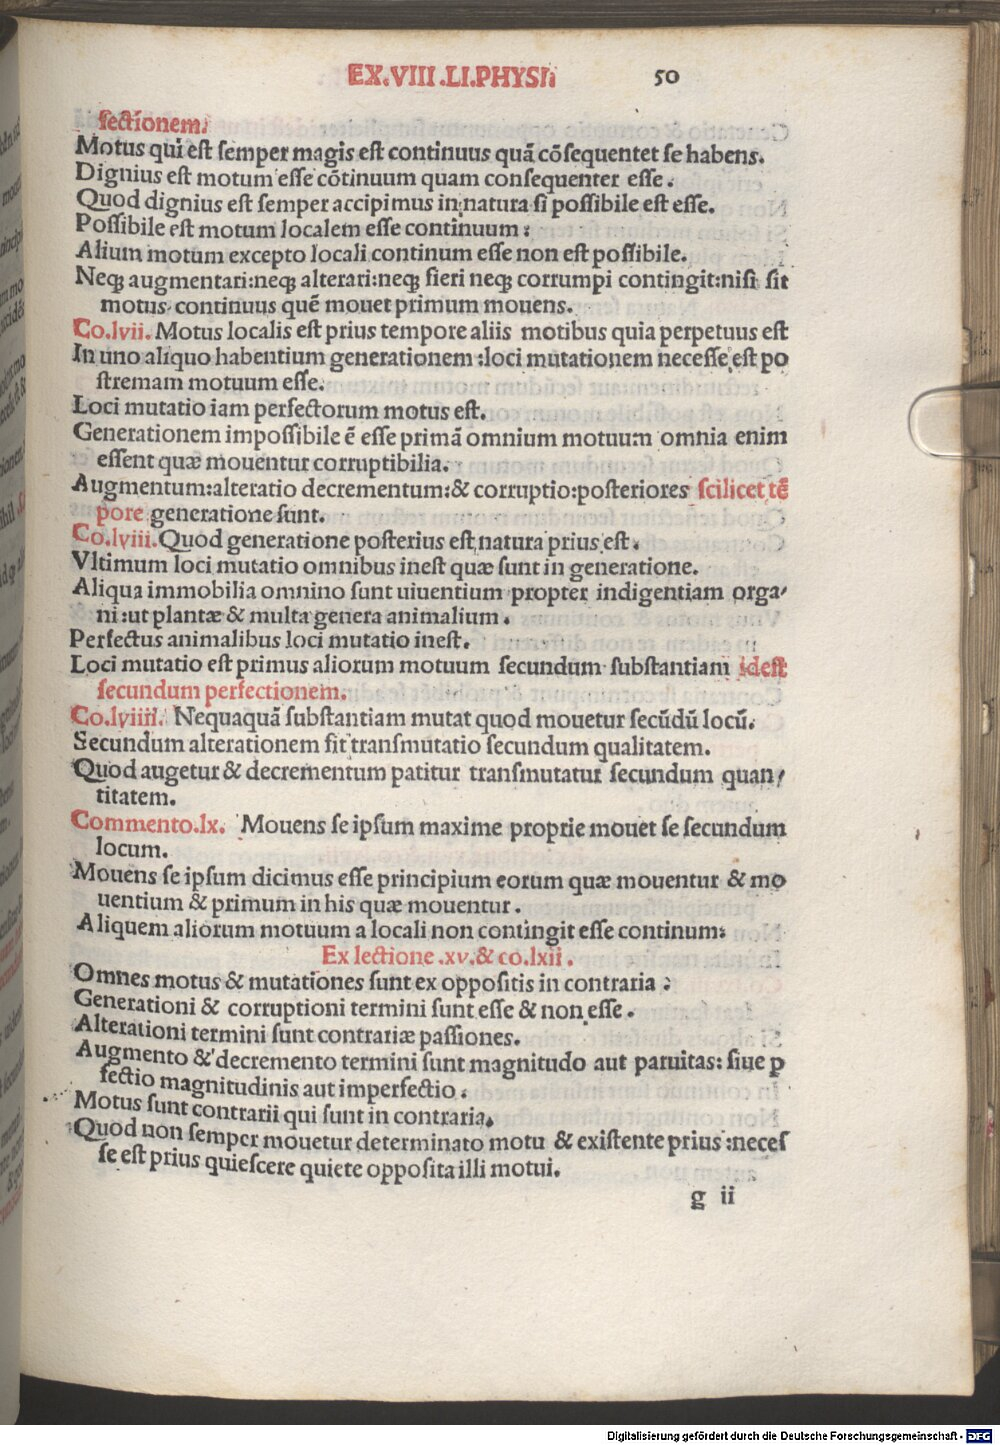 EX.VIII.LI.PHYSI.
50
fectionem.
Motus qui est semper magis est continuus quã cõsequentet se habens.
Dignius est motum esse cõtinuum quam consequenter esse.
Quod dignius est semper accipimus in natura si possibile est esse.
Possibile est motum localem esse continuum:
Alium motum excepto locali continum esse non est possibile.
Neqꝫ augmentari:neqꝫ alterari:neqꝫ fieri neqꝫ corrumpi contingit:nisi sit
motus continuus quẽ mouet primum mouens.
Co.lvii. Motus localis est prius tempore aliis motibus quia perpetuus est
In uno aliquo habentium generationem:loci mutationem necesse est po
stremam motuum esse.
Loci mutatio iam perfectorum motus est.
Generationem impossibile ẽ esse primã omnium motuum omnia enim
essent quæ mouentur corruptibilia.
Augmentum:alteratio decrementum:& corruptio:posteriores scilicet tẽ
pore generatione sunt.
Co.lviii. Quod generatione posterius est natura prius est.
Vltimum loci mutatio omnibus inest quæ sunt in generatione.
Aliqua immobilia omnino sunt uiuentium propter indigentiam orga/
ni:ut plantæ & multa genera animalium.
Perfectus animalibus loci mutatio inest.
Loci mutatio est primus aliorum motuum secundum substantiam idest
secundum perfectionem.
Co.lviiii. Nequaquã substantiam mutat quod mouetur secũdũ locũ.
Secundum alterationem fit transmutatio secundum qualitatem.
Quod augetur & decrementum patitur transmutatur secundum quan/
titatem.
Commento.lx. Mouens seipsum maxime proprie mouet se secundum
locum.
Mouens seipsum dicimus esse principium eorum quæ mouentur & mo
uentium & primum in his quæ mouentur.
Aliquem aliorum motuum a locali non contingit esse continum:
Ex lectione .xv.& co.lxii.
Omnes motus & mutationes sunt ex oppositis in contraria:
Generationi & corruptioni termini sunt esse & non esse.
Alterationi termini sunt contrariæ passiones.
Augmento & decremento termini sunt magnitudo aut paruitas: siue ꝑ
fectio magnitudinis aut imperfectio.
Motus sunt contrarii qui sunt in contraria.
Quod non semper mouetur determinato motu & existente prius:neces
se est prius quiescere quiete opposita illi motui.
g ii
Digitalisierung gefördert durch die Deutsche Forschungsgemeinschaft - DFG